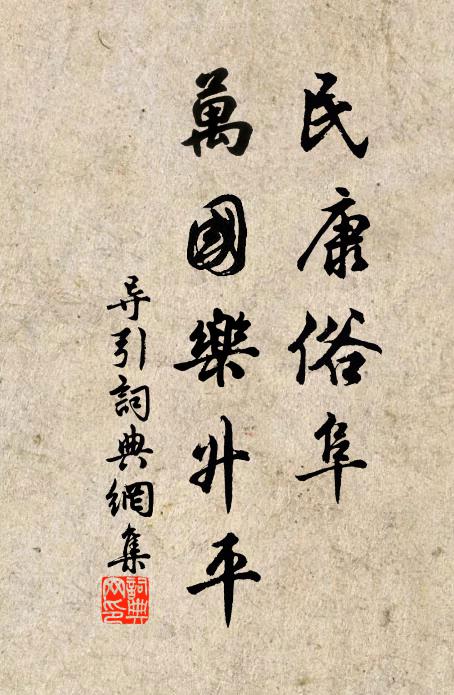 民康俗阜
萬國樂升平
导引詞典網集
詞典